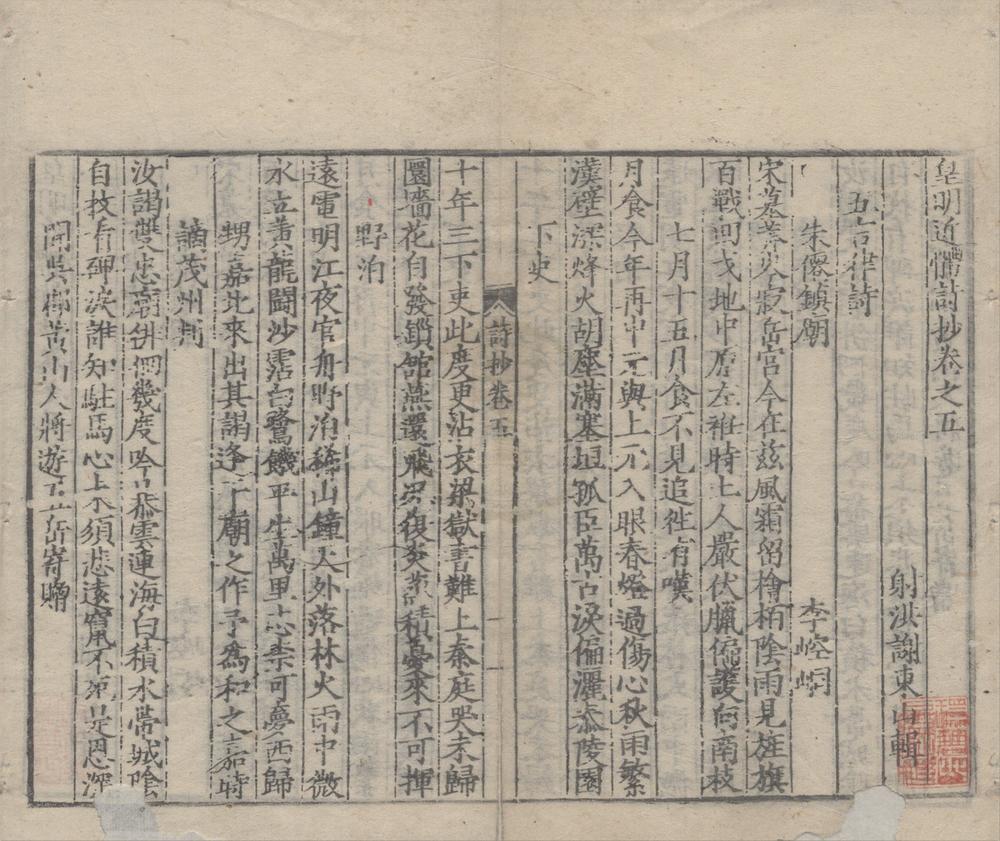 皇明近體詩抄卷之五
射洪謝東山輯
五言律詩
朱僊鎮廟 李崆峒
宋墓莽岑寂岳宮今在茲風霜留檜栢陰雨見旌旗
百戰間戈地中原左袵時土人嚴伏臘偏護向南枝
七月十五月食不見追徃有嘆
月食今年再中元與上元入眼春燈過傷心秋雨繁
漢壁深烽火胡塵滿塞垣孤臣萬古淚偏灑泰陵園
下吏
詩抄卷五 一
十年三下吏此度更沾衣梁獄書難上秦庭哭未歸
圜墻花自發鎖館燕還飛況復炎蒸積憂來不可揮
野泊
遠電明江夜官舟野泊稀山鐘天外落林火雨中微
永立黃龍鬪沙霑白鷺饑平生萬里志柰可夢西歸
甥嘉北來出其謁逢干廟之作予為和之嘉時
謫茂州判
汝謁雙忠廟徘徊幾度吟古恭雲連海白積水帶城陰
自抆看碑淚誰知駐馬心上不須悲遠竄不死是恩深
聞吳郡黃山人將遊五岳寄贈